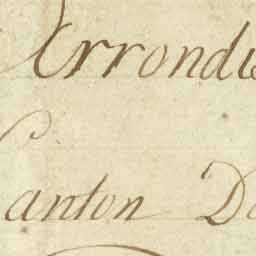 Arrondi
Canton D